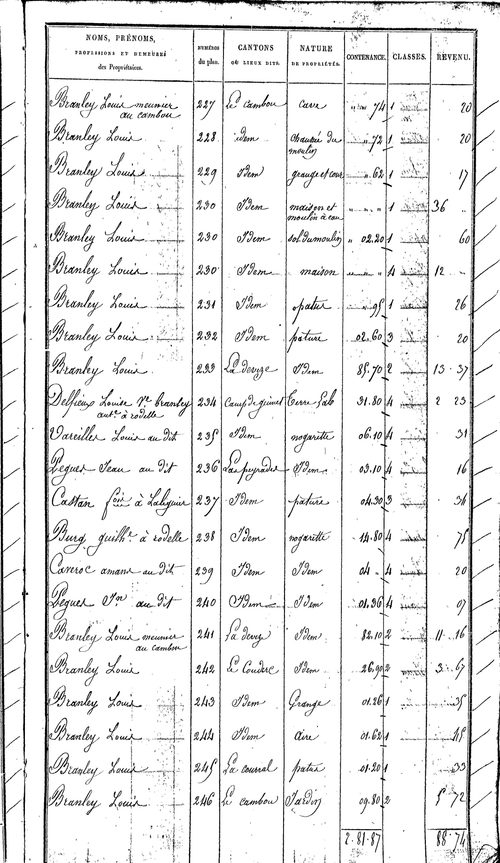 NOMS, PRÉNOMS, PROFESSIONS ET DEMEURES des Propriétaires. NUMÉROS du plan. CANTONS OU LIEUX DITS. NATURE DE PROPRIÉTÉS. CONTENANCE. CLASSES. REVENU.
Branley Louis meunier au cambou 227 Le cambou 74 1 20
Branley Louis 228 idem chaussée du moulin 72 1 20
Branley Louis 229 Idem grange et cour 62 1 17
Branley Louis 230 Idem maison et moulin à eau " " " 1 36 "
Branley Louis 230 Idem sol du moulin " 02.20 1 60
Branley Louis 230 Idem maison " " " 4 12 "
Branley Louis 231 Idem patus " 95 1 26
Branley Louis 232 Idem pature 02.60 3 20
Branley Louis 233 La deveze Idem 85.70 2 13 37
Louise Branley à rodelle 234 31.80 4 2 23
Vareilles Louis au dit 235 Idem nogarette 06.10 4 31
Pegues Jean au dit 236 Las peyrades Idem 03.10 4 16
Castan à 237 Idem pature 04.30 3 34
Burg guilh. à rodelle 238 Idem nogarette 14.80 4 75
Caveroc amans au dit 239 Idem Idem 04 " 4 20
Pegues Jn au dit 240 Idem Idem 01.36 4 07
Branley Louis meunier au cambou 241 La deveze Idem 82.10 2 11 16
Branley Louis 242 Le Couderc Idem 26.90 2 3 67
Branley Louis 243 Idem Grange 01.26 1 35
Branley Louis 244 Idem aire 01.62 1 45
Branley Louis 245 La courral patus 01.20 1 33
Branley Louis 246 Le cambou Jardin 09.80 2 5 72
2.81.87 88.74